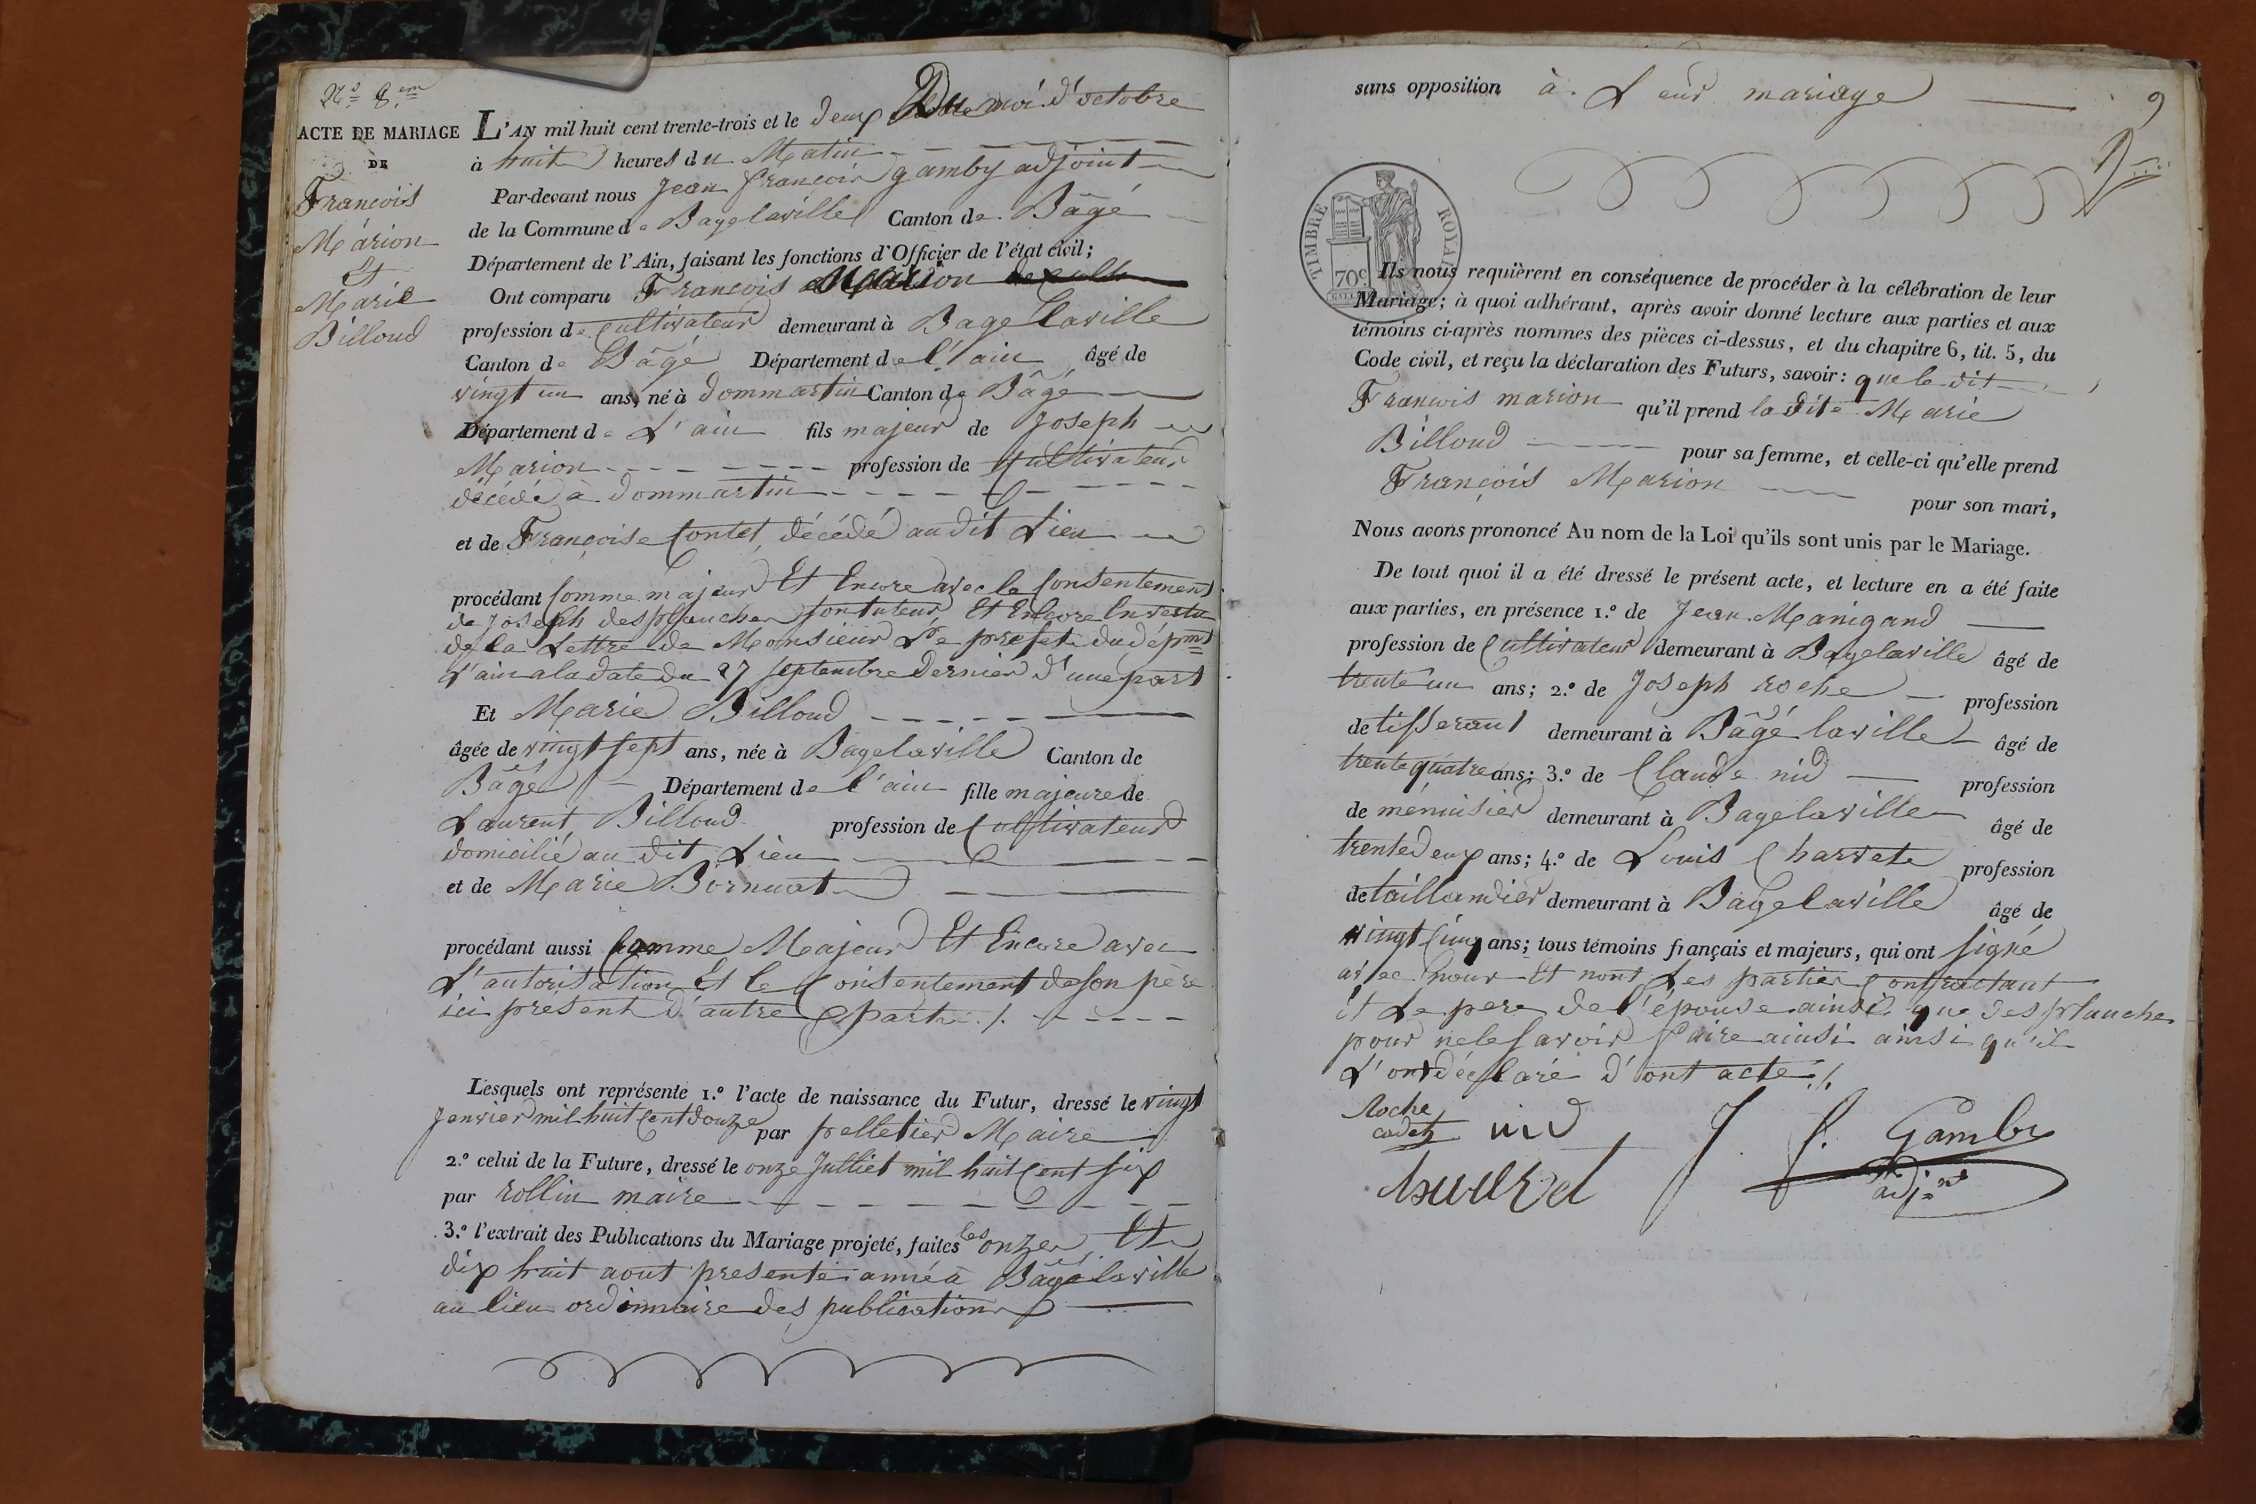 N.º 8.em
ACTE DE MARIAGE
DE
François
Marion
Et
Marie
Billoud
L'AN mil huit cent trente-trois et le deux Du moi d'octobre
à huit heures du Matin
Par-devant nous Jean françois gamby adjoint
de la Commune de Bagelaville Canton de Bâgé
Département de l'Ain, faisant les fonctions d'Officier de l'état civil;
Ont comparu François Marion
profession de Cultivateur demeurant à Bagelaville
Canton de Bâgé Département de l'ain âgé de
vingt un ans, né à dommartin Canton de Bâgé
Département de L'ain fils majeur de Joseph
Marion profession de Cultivateur
décédé à dommartin
et de Françoise Contet, décédé au dit Lieu
procédant Comme majeur Et Encore avec le Consentement
de Joseph desplanches son tuteur Et Encore En vertu
de la Lettre de Monsieur Le prefet du dépmt
L'ain a la date du 27 septembre dernier d'une part
Et Marie Billoud
âgée de vingt sept ans, née à Bagelaville Canton de
Bâgé Département de l'ain fille majeure de
Laurent Billoud profession de Cultivateur
domicilié au dit Lieu
et de Marie Bornuat
procédant aussi Comme Majeur Et Encore avec
L'autorisation Et le Consentement de son pere
ici présent d'autre part ./.
Lesquels ont représenté 1.º l'acte de naissance du Futur, dressé le vingt
Janvier mil huit Cent douze par pelletier Maire
2.º celui de la Future, dressé le onze Julliet mil huit Cent six
par rollin maire
3.º l'extrait des Publications du Mariage projeté, faites les onze, Et
dix huit aout presente année à Bâgé laville
au lieu ordinnaire des publications
sans opposition à Leur mariage
9
TIMBRE ROYAL
70c
Ils nous requièrent en conséquence de procéder à la célébration de leur
Mariage; à quoi adhérant, après avoir donné lecture aux parties et aux
témoins ci-après nommés des pièces ci-dessus, et du chapitre 6, tit. 5, du
Code civil, et reçu la déclaration des Futurs, savoir: que le dit
François marion qu'il prend la dite Marie
Billoud pour sa femme, et celle-ci qu'elle prend
François Marion pour son mari,
Nous avons prononcé Au nom de la Loi qu'ils sont unis par le Mariage.
De tout quoi il a été dressé le présent acte, et lecture en a été faite
aux parties, en présence 1.º de Jean Manigand
profession de Cultivateur demeurant à Bagelaville âgé de
trente un ans; 2.º de Joseph roche profession
de tisserant demeurant à Bâgé laville âgé de
trente quatre ans; 3.º de Claude nid profession
de ménuisier demeurant à Bagelaville âgé de
trente deux ans; 4.º de Louis Charvete profession
de taillandier demeurant à Bagelaville âgé de
vingt Cinq ans; tous témoins français et majeurs, qui ont signé
avec nous Et nont Les parties Contractant
Et Le pere de l'épouse ainsi que desplanches
pour ne le savoir faire ainsi ainsi qu'il
L'ont déclaré d'ont acte ./.
Roche
cadet nid J. f. Gamby
adj.nt